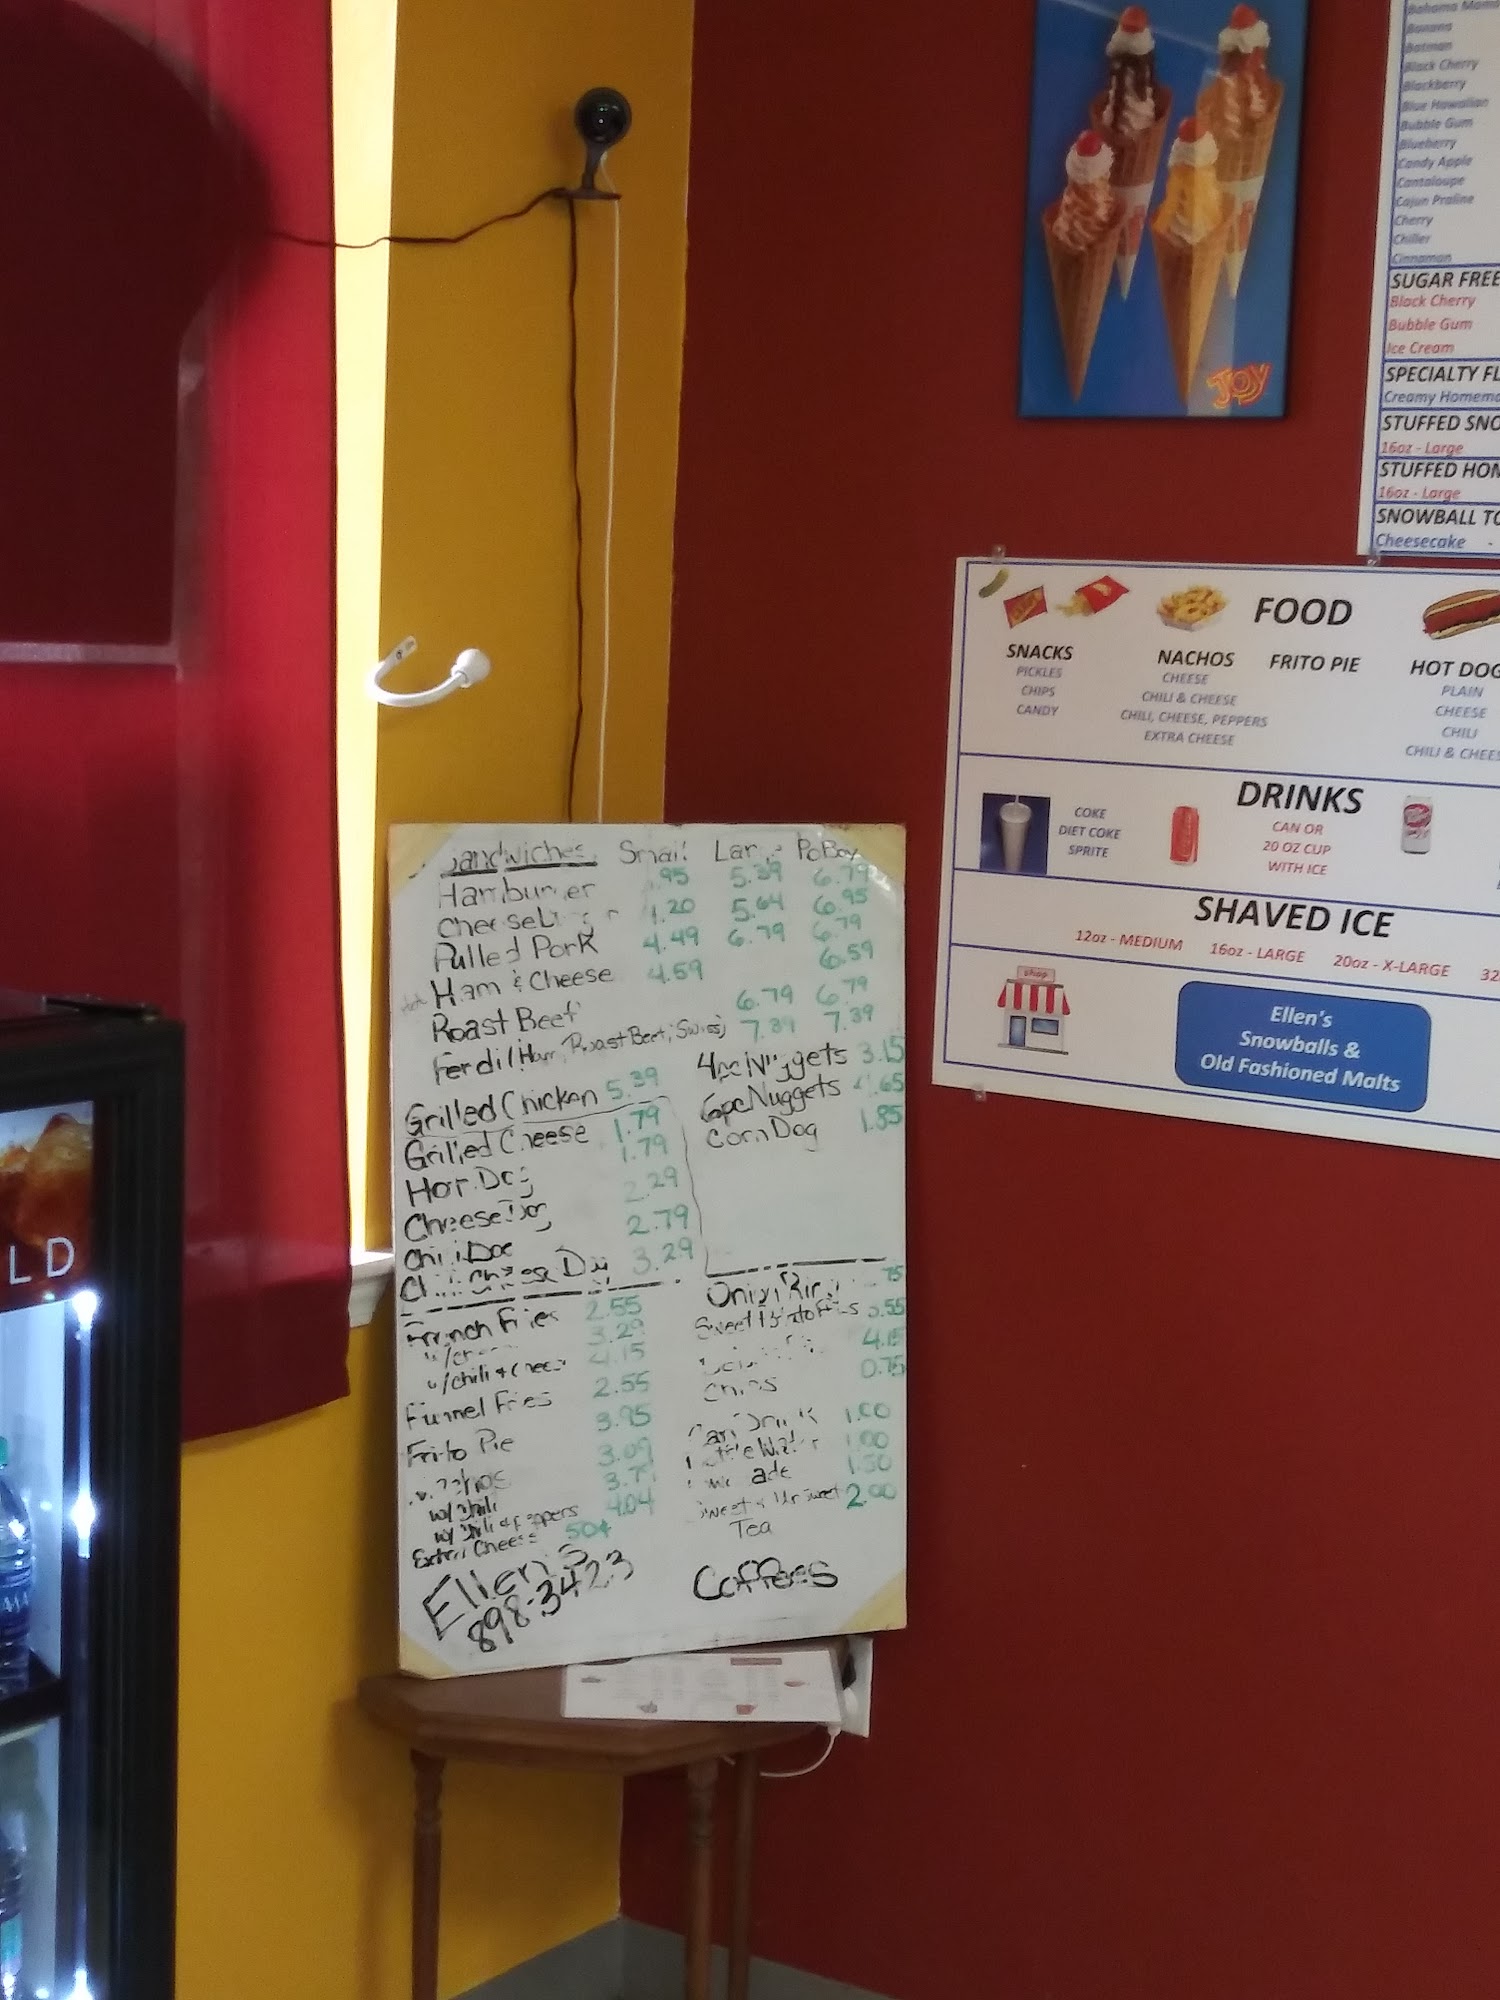 Banana
Batman
Black Cherry
Blackberry
Blue Hawaiian
Bubble Gum
Blueberry
Candy Apple
Cantaloupe
Cajun Praline
Cherry
Chiller
Cinnamon
SUGAR FREE
Black Cherry
Bubble Gum
Ice Cream
SPECIALTY
Creamy
STUFFED
16oz - Large
STUFFED
16oz - Large
SNOWBALL
Cheesecake -
JOY
FOOD
SNACKS
PICKLES
CHIPS
CANDY
NACHOS
CHEESE
CHILI & CHEESE
CHILI, CHEESE, PEPPERS
EXTRA CHEESE
FRITO PIE
HOT DOG
PLAIN
CHEESE
CHILI
CHILI &
DRINKS
COKE
DIET COKE
SPRITE
CAN OR
20 OZ CUP
WITH ICE
SHAVED ICE
12oz - MEDIUM 16oz - LARGE 20oz - X-LARGE
shop
Ellen's
Snowballs &
Old Fashioned Malts
Sandwiches Small PoBoy
Hamburger .95 5.39 6.79
1.20 5.64 6.95
Pulled Pork 4.49 6.79 6.79
Ham & Cheese 4.59 6.59
Roast Beef 6.79 6.79
Ferdi (Ham, Roast Beef, Swiss) 7.39 7.39
Grilled Chicken 5.39
Grilled Cheese 1.79
Hot Dog 1.79
Cheese Dog 2.29
Chili Dog 2.79
Chili Cheese Dog 3.29
4pc Nuggets 3.15
6pc Nuggets
Corn Dog 1.85
French Fries 2.55
3.29
w/chili & cheese 4.15
Funnel Fries 2.55
Frito Pie 3.95
3.09
w/ chili
w/ chili & peppers 4.04
Extra Cheese 50¢
Onion Rings
Sweet Potato Fries
4.15
Chips 0.75
Can Drink 1.00
1.00
1.50
Sweet & Unsweet 2.00
Tea
Ellen's
898-3423
Coffees
LD